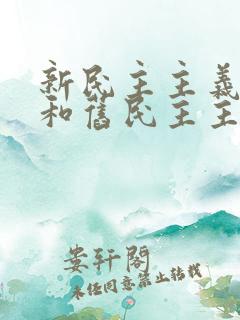 新民主主義
和舊民主主
娄轩阁
未经同意禁止转载